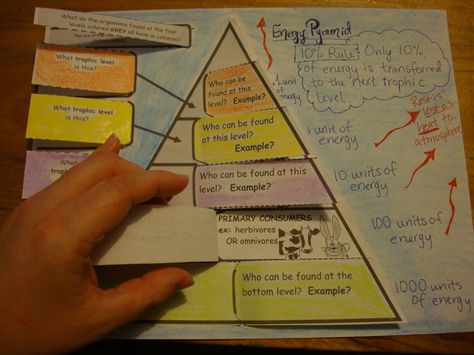 What do the organisms found at the four
levels colored GREY all have in common?
Energy Pyramid
10% Rule: Only 10%
of energy is transferred
to the next trophic
level.
Rest is
lost as
heat to
atmosphere
What trophic level
is this?
What trophic level
is this?
What
trophic
Who can be
found at
this level?
Example?
Who can be found at
this level?
Example?
Who can be found at this
level? Example?
PRIMARY CONSUMERS
ex: herbivores
OR omnivores
Who can be found at the
bottom level? Example?
.1 unit
of
energy
1 unit of
energy
10 units of
energy
100 units of
energy
1000 units
of energy